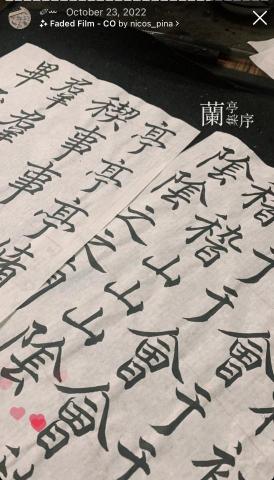 October 23, 2022
Faded Film - CO by nicos_pina >
蘭亭集序
稽于
會于于
于于會會
稽稽山山陰
陰陰之之
亭亭亭
禊事事
羣羣
畢